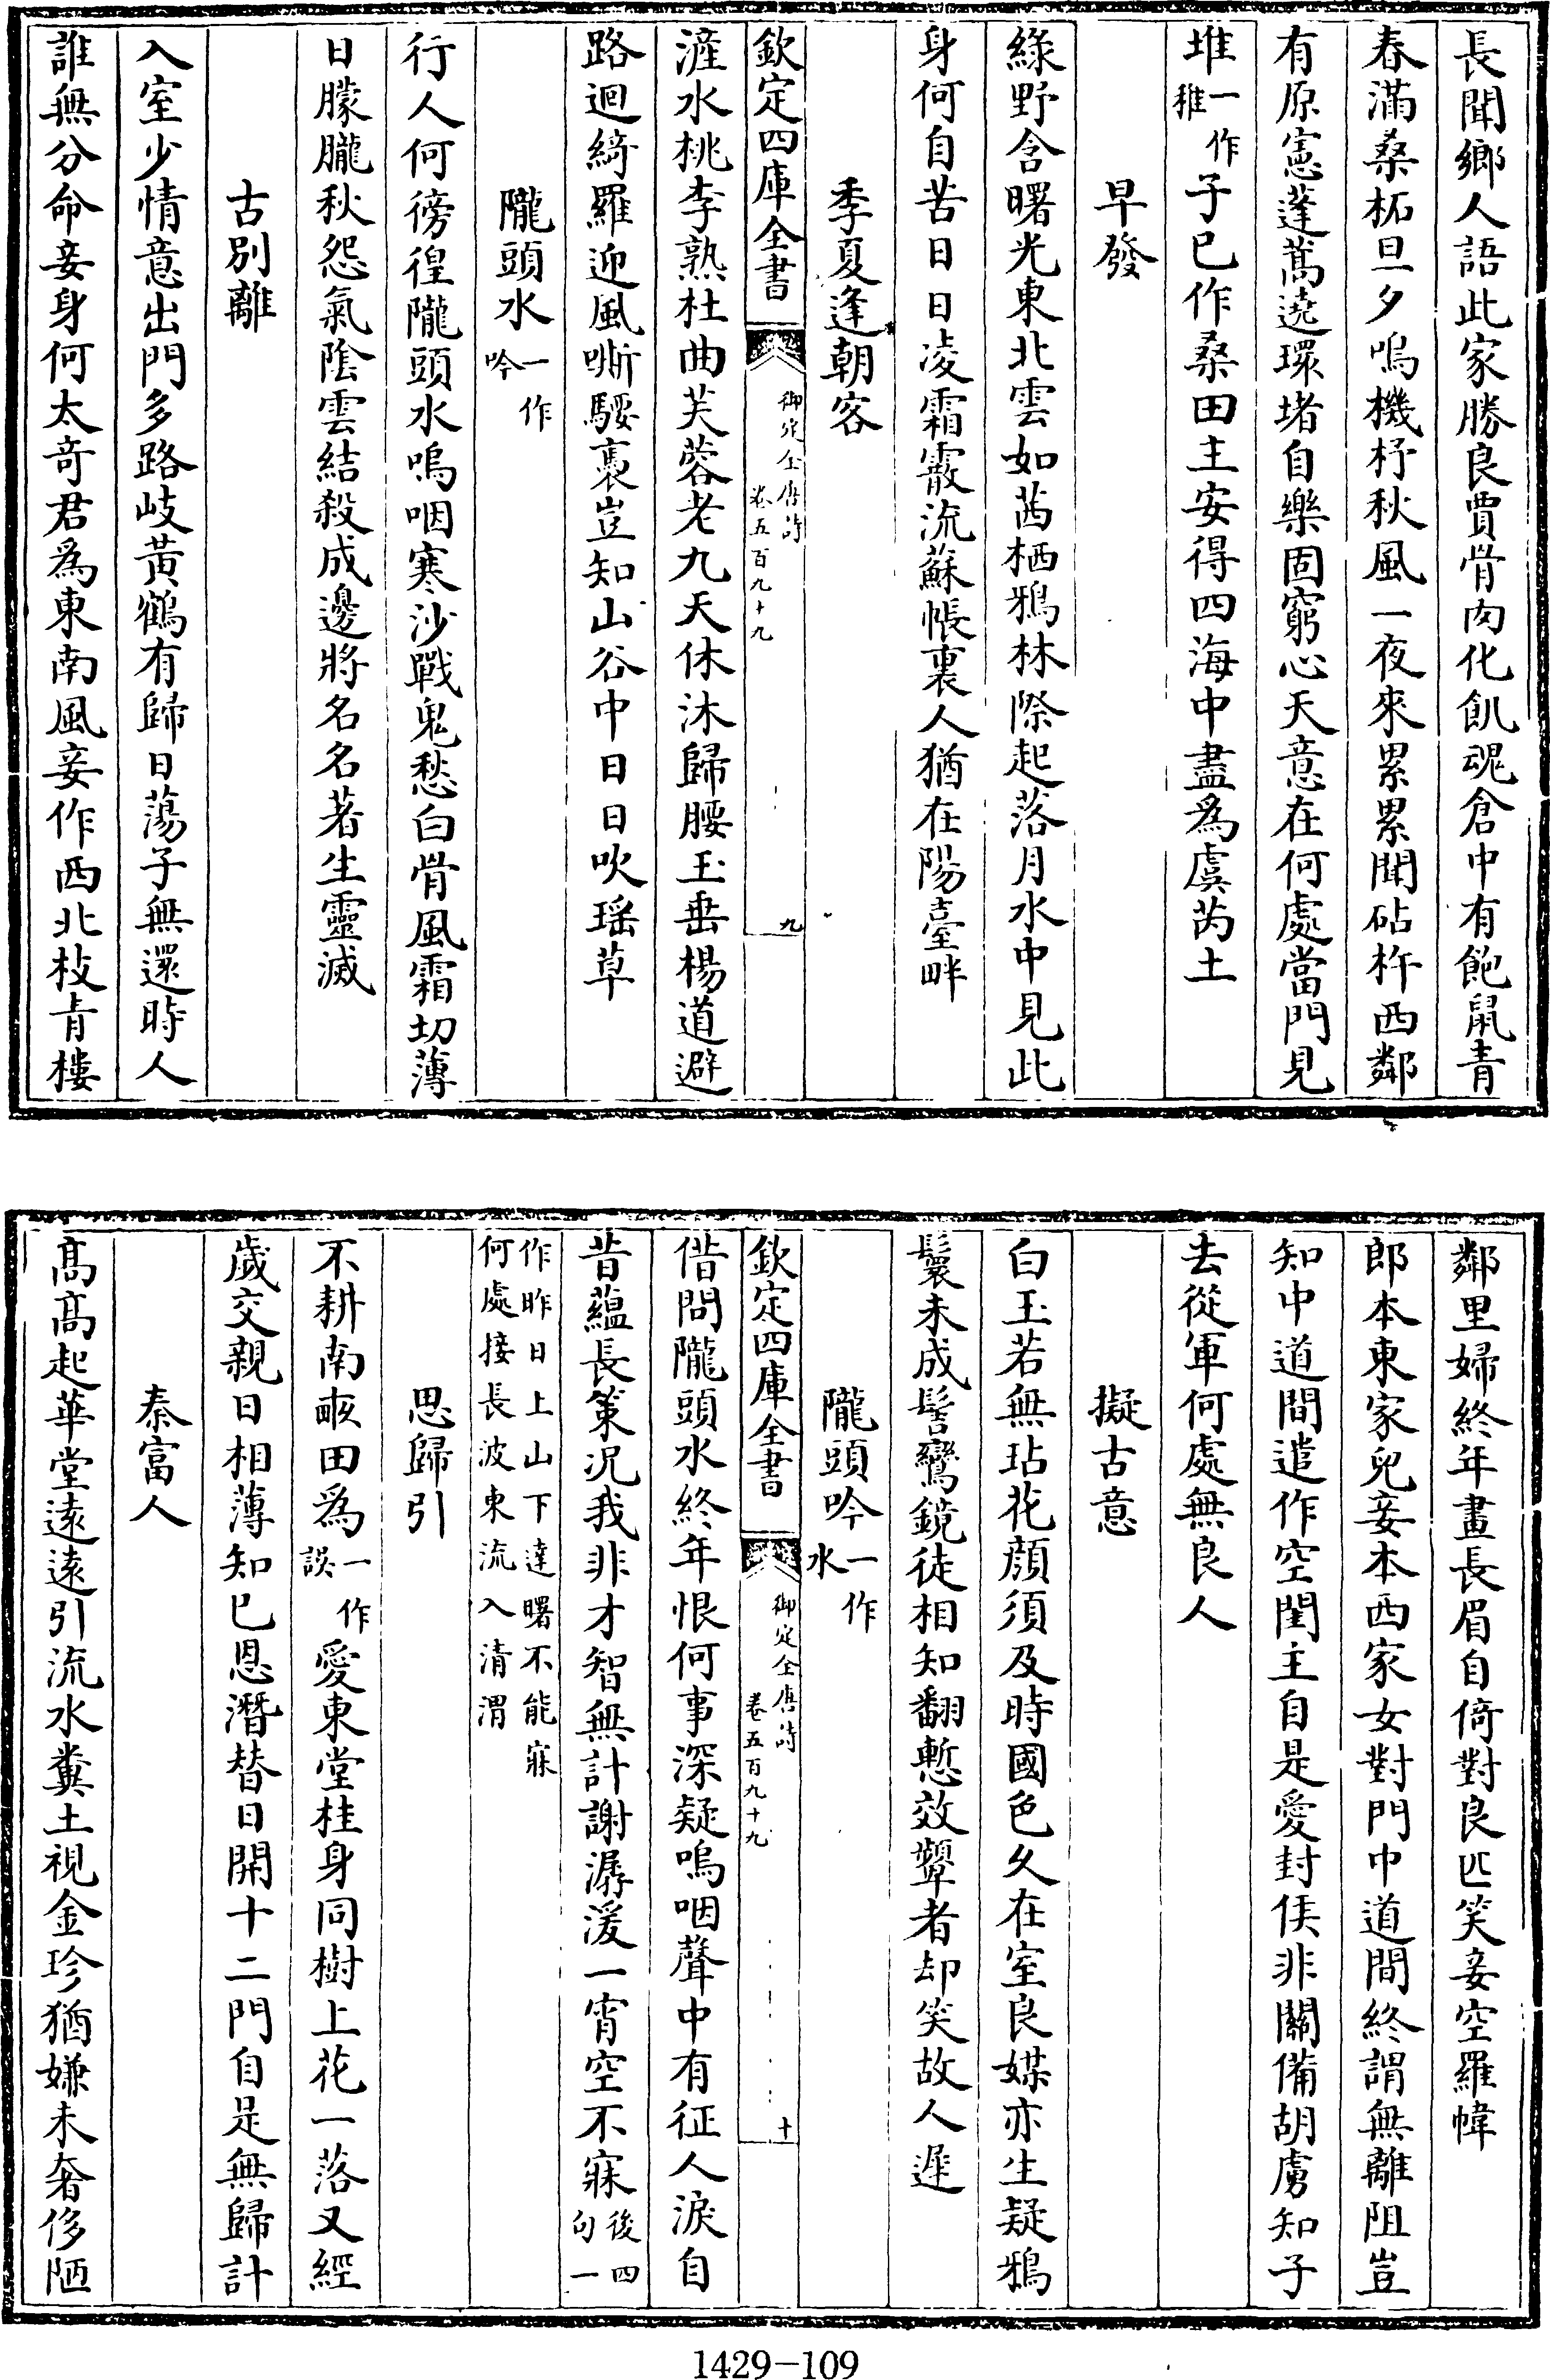 長聞鄉人語此家勝良賈骨肉化飢魂倉中有飽鼠青
春滿桑柘旦夕鳴機杼秋風一夜來累累聞砧杵西鄰
有原憲蓬蒿遶環堵自樂固窮心天意在何處當門見
堆一作稚子已作桑田主安得四海中盡為虞芮土
早發
綠野含曙光東北雲如茜栖鴉林際起落月水中見此
身何自苦日日凌霜霰流蘇帳裏人猶在陽臺畔
季夏逢朝客
欽定四庫全書 御定全唐詩 卷五百九十九 九
滻水桃李熟杜曲芙蓉老九天休沐歸腰玉垂楊道避
路迴綺羅迎風嘶騕褭豈知山谷中日日吹瑤草
隴頭水一作吟
行人何徬徨隴頭水嗚咽寒沙戰鬼愁白骨風霜切薄
日朦朧秋怨氣陰雲結殺成邊將名名著生靈滅
古別離
入室少情意出門多路岐黃鶴有歸日蕩子無還時人
誰無分命妾身何太奇君為東南風妾作西北枝青樓
鄰里婦終年畫長眉自倚對良匹笑妾空羅幃
郎本東家兒妾本西家女對門中道間終謂無離阻豈
知中道間遣作空閨主自是愛封侯非關備胡虜知子
去從軍何處無良人
擬古意
白玉若無玷花顏須及時國色久在室良媒亦生疑鴉
鬟未成髻鸞鏡徒相知翻慙效顰者却笑故人遲
隴頭吟一作水
欽定四庫全書 御定全唐詩 卷五百九十九 十
借問隴頭水終年恨何事深疑嗚咽聲中有征人淚自
昔蘊長策況我非才智無計謝潺湲一宵空不寐後四句一
作昨日上山下達曙不能寐何處接長波東流入清渭
思歸引
不耕南畝田為一作誤愛東堂桂身同樹上花一落又經
歲交親日相薄知已恩潛替日開十二門自是無歸計
秦富人
高高起華堂遠遠引流水糞土視金珍猶嫌未奢侈陋
1429-109